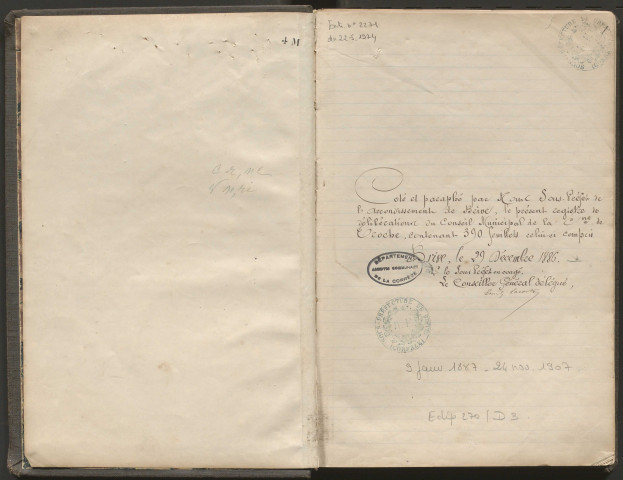 4 M
Ent. n° 2274
du 22-5 1974
Coté et paraphé par Nous, Sous-Préfet de
l'arrondissement de Brive, le présent registre de
délibérations du Conseil Municipal de la Cne de
contenant 390 feuillets celui-ci compris.
Brive, le 29 Décembre 1886.
Le Sous Préfet en congé,
Le Conseiller Général délégué,
DÉPARTEMENT
ARCHIVES COMMUNALES
DE LA CORRÈZE
9 janv 1887 - 24 nov. 1907
Edép 270 / D 3